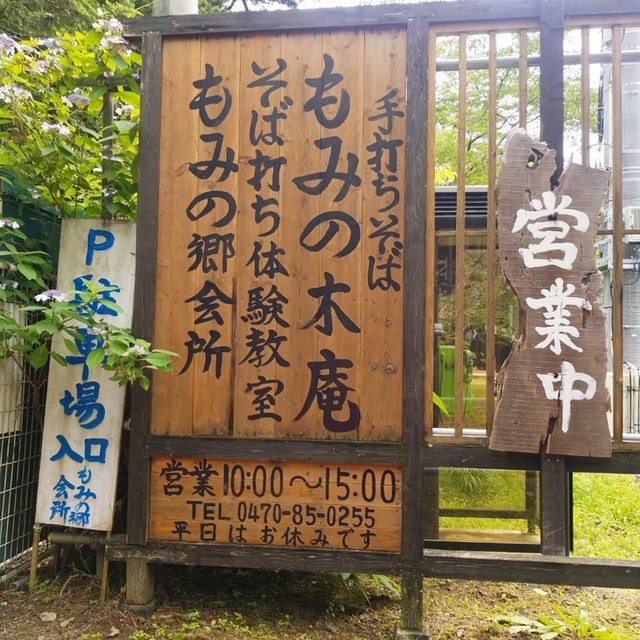 手打ちそば
もみの木庵
そば打ち体験教室
もみの郷会所
営業10:00〜15:00
TEL 0470-85-0255
平日はお休みです
営業中
P駐車場
入口
もみの郷
会所